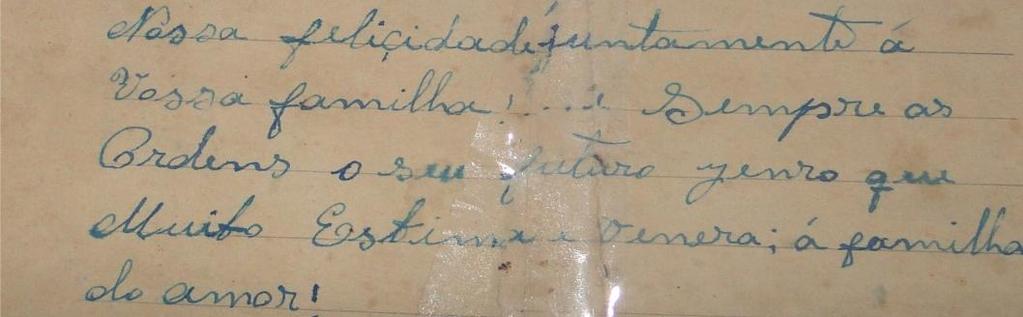 Nossa feliçidade juntamente á
Vossa familha! ... Sempre as
Ordens o seu futuro jenro que
Muito Estima e Venera; á familha
do amor!